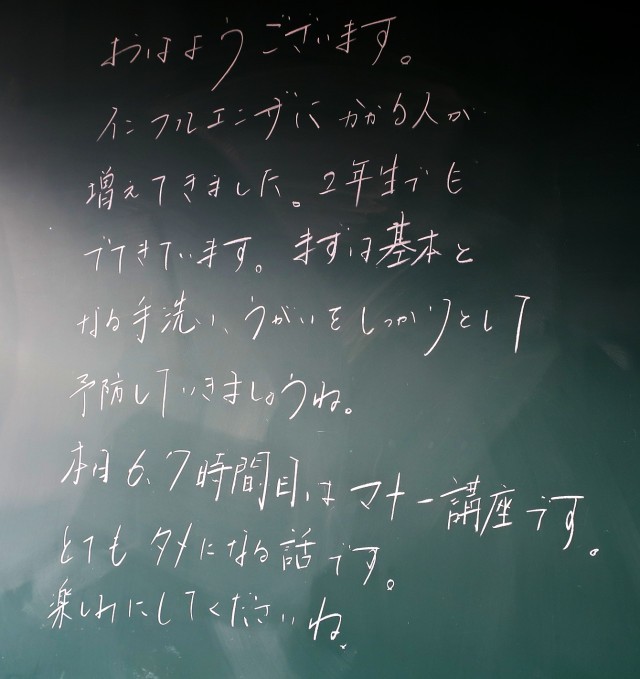 おはようございます。
インフルエンザにかかる人が
増えてきました。2年生でも
でてきています。まずは基本と
なる手洗い、うがいをしっかりとして
予防していきましょうね。
本日6、7時間目はマナー講座です。
とてもタメになる話です。
楽しみにしてくださいね。